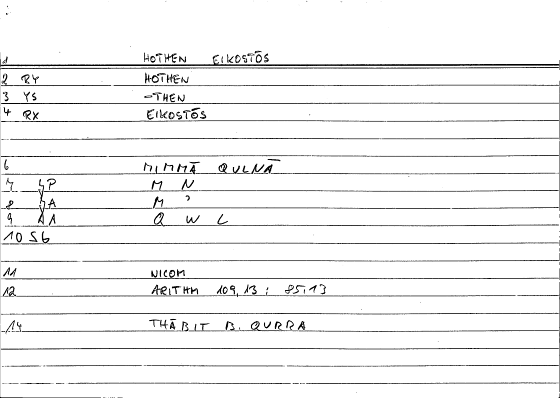 1 HOTHEN EIKOSTŌS
2 RY HOTHEN
3 YS -THEN
4 RX EIKOSTŌS
6 MIMMĀ QULNĀ
7 P M N
8 A M ʾ
9 A A Q W L
10 S6
11 NICOM
12 ARITHM 109,13 : 85,13
14 THĀBIT B. QURRA